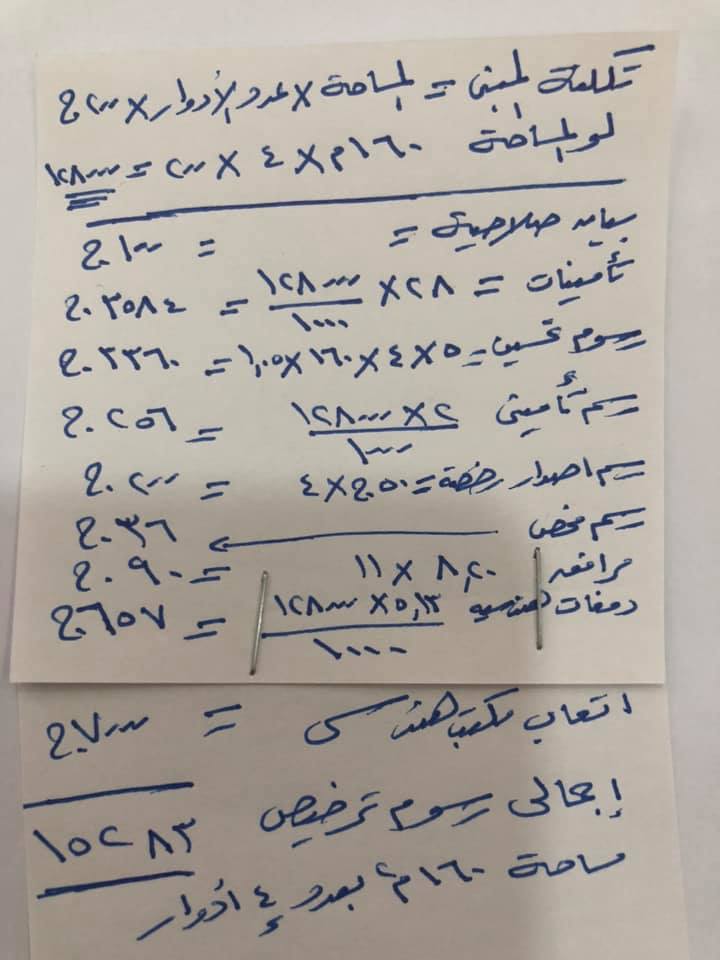 تكلفة المبنى = المساحة × عدد الأدوار × ٢٠٠ ج
لو المساحة ١٦٠م × ٤ × ٢٠٠ = ١٢٨٠٠٠
بيان صلاحية = = ١٠٠ ج.
تأمينات = ٢٨ × ١٢٨٠٠٠ / ١٠٠٠ = ٣٥٨٤ ج.
رسوم تحسين = ٥ × ٤ × ١٦٠ × ١,٠٥ = ٣٣٦٠ ج.
رسم تأمينى ١٢٨٠٠٠ × ٢ / ١٠٠٠ = ٢٥٦ ج.
رسم اصدار رخصة = ٥٠ ج. × ٤ = ٢٠٠ ج.
رسم فحص ٣٦ ج.
مرافق ٨,٢٠ × ١١ = ٩٠ ج.
دمغات هندسيه ١٢٨٠٠٠ × ٥,١٣ / ١٠٠٠ = ٦٥٧ ج.
اتعاب مكتب هندسى = ٧٠٠٠ ج.
إجمالى رسوم ترخيص ١٥٢٨٣
مساحة ١٦٠م٢ بعدد ٤ أدوار